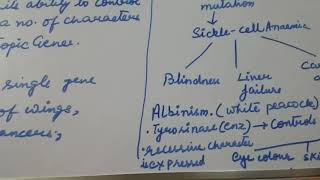 its ability to control
a no. of characters
topic Genes.
single gene
of wings,
mutation
Sickle-cell Anaemia
Blindness
Liver failure
Albinism. (white peacock)
• Tyrosinase (enz) → Controls
• recessive character
is expressed
Eye colour